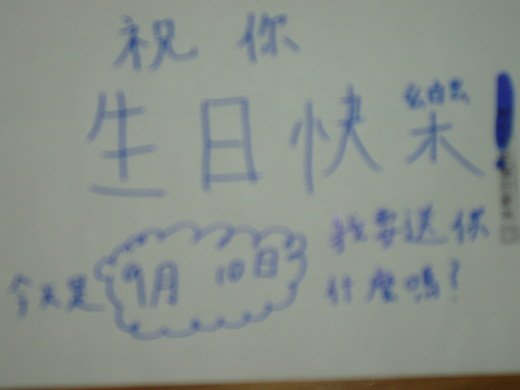 祝你
生日快樂
今天是9月10日
我要送你
什麼嗎?